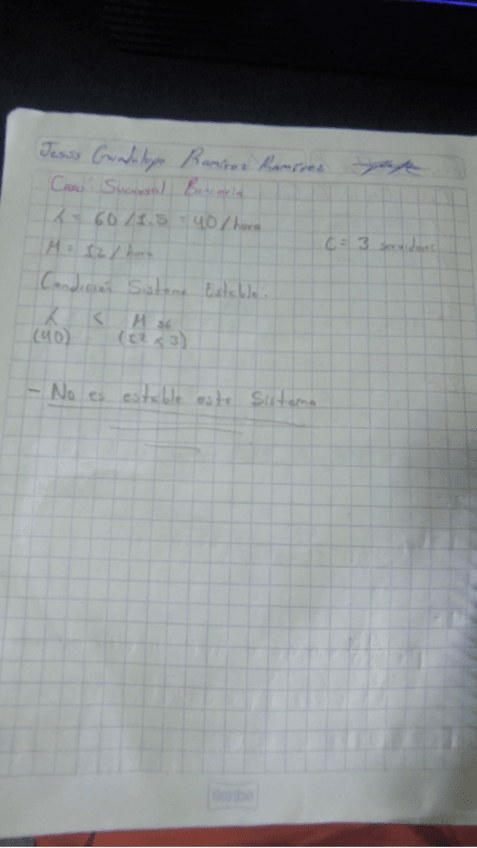 Jesus Guadalupe Ramirez Ramirez
Caso: Sucursal Bancaria
λ = 60 / 1.5 = 40 / hora
M = 12 / hora C = 3 servidores
Condición Sistema Estable.
λ < M
(40) (12 x 3)
- No es estable este Sistema
Scribe